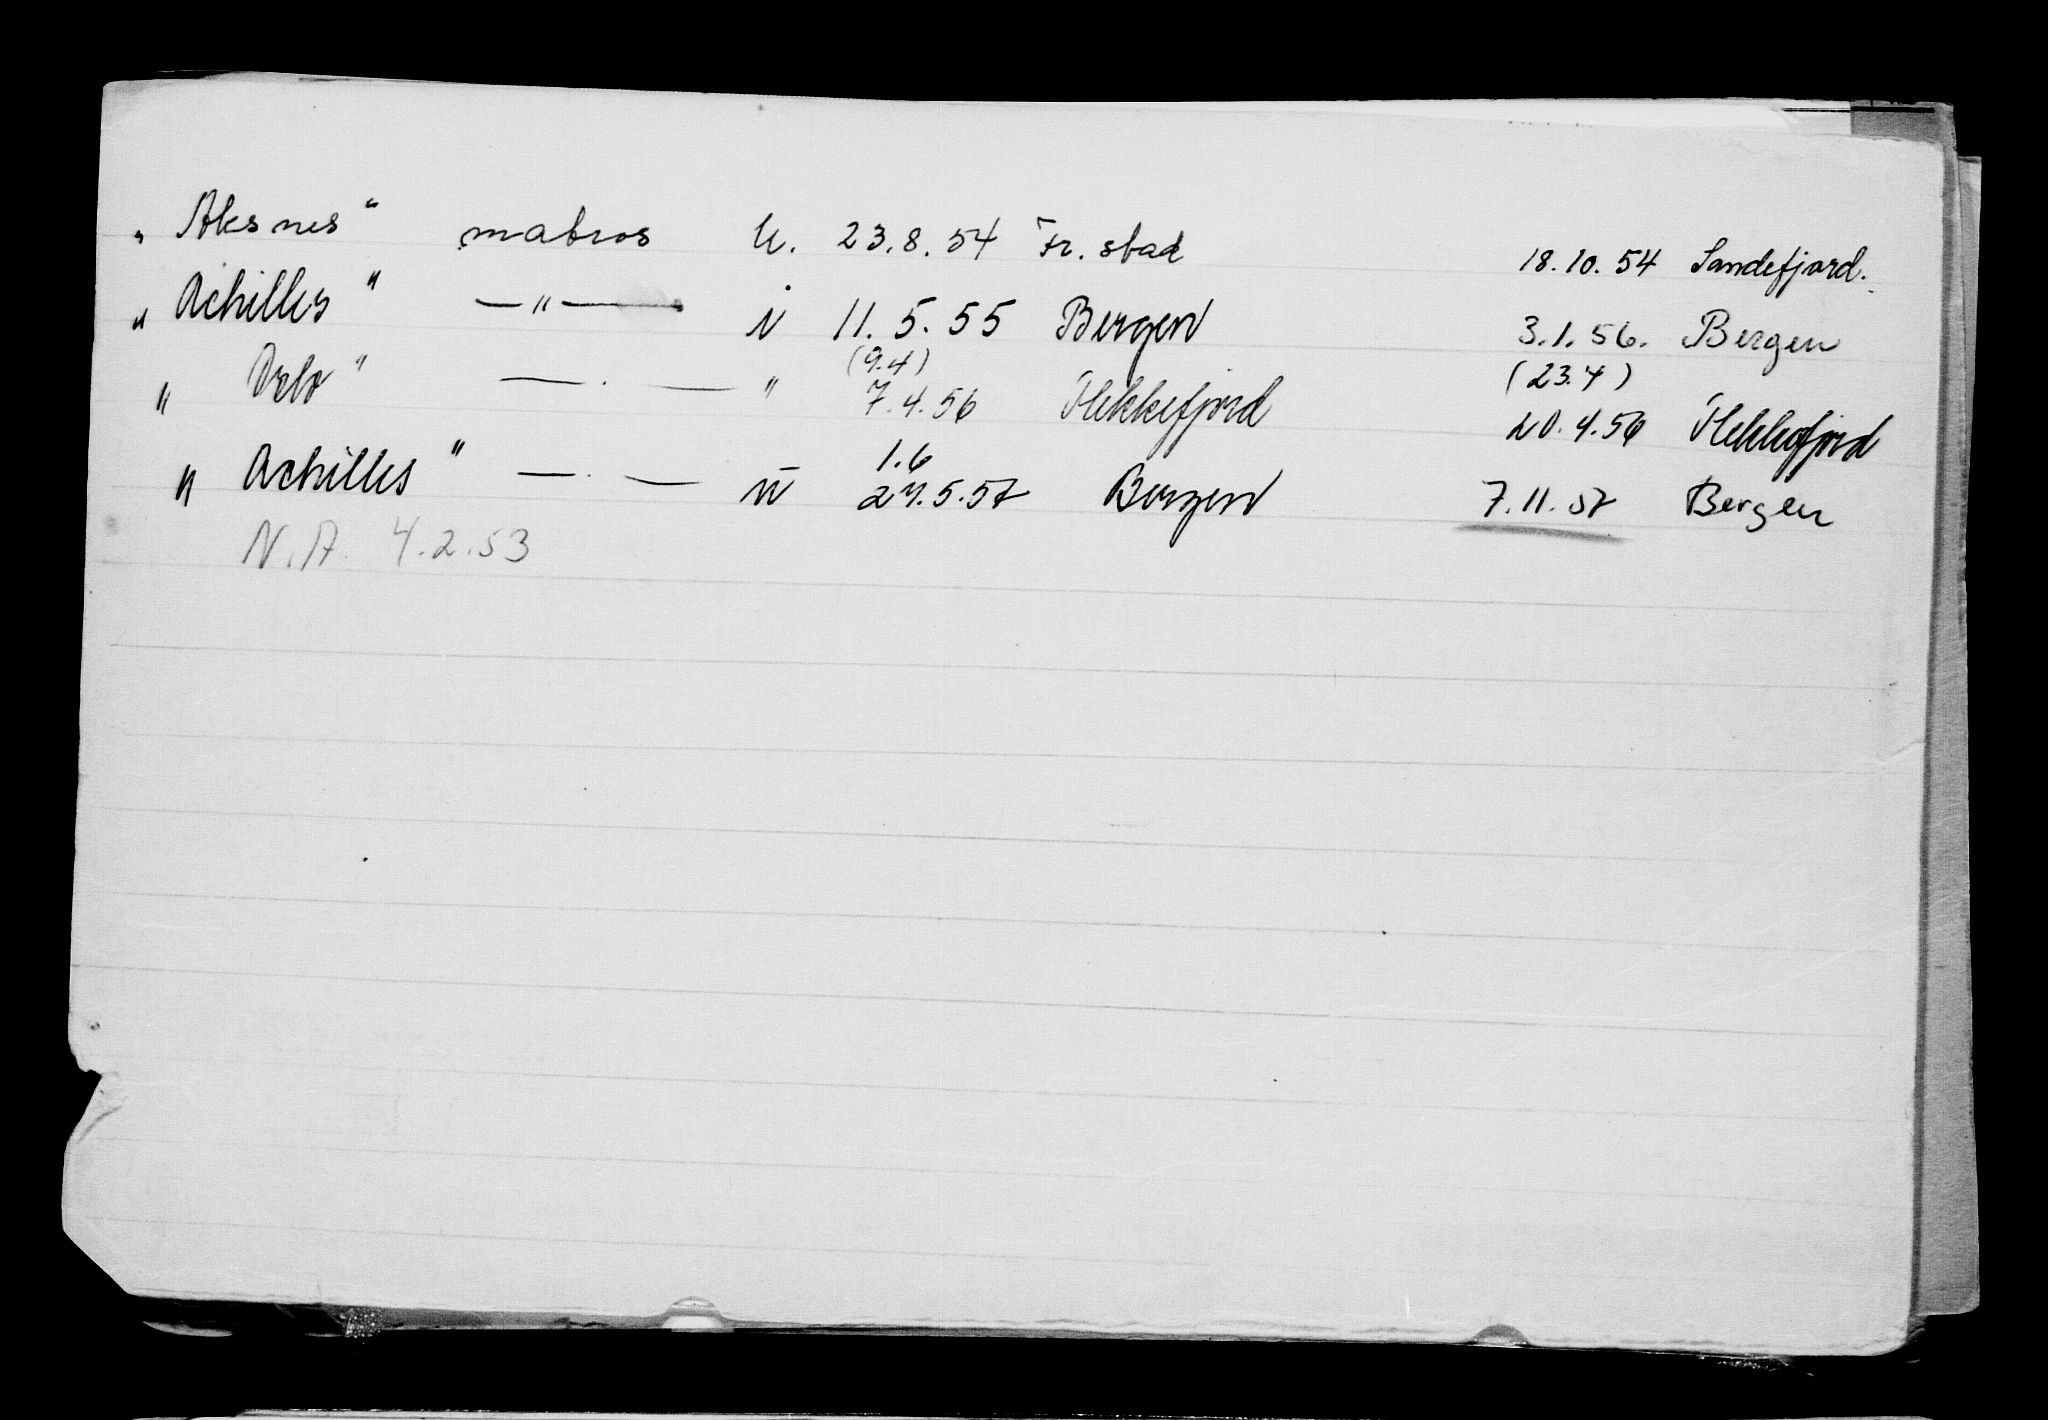 „ Aksnes “ matros U. 23.8.54 Fr.stad 18.10.54 Sandefjord.
„ Achilles " — " — 11.5.55 Bergen 3.1.56. Bergen
(9.4) (23.4)
„ " — . — " 7.4.56 Flekkefjord 20.4.56 Flekkefjord
1.6
„ Achilles " — . — 27.5.57 Bergen 7.11.57 Bergen
N.A. 4.2.53